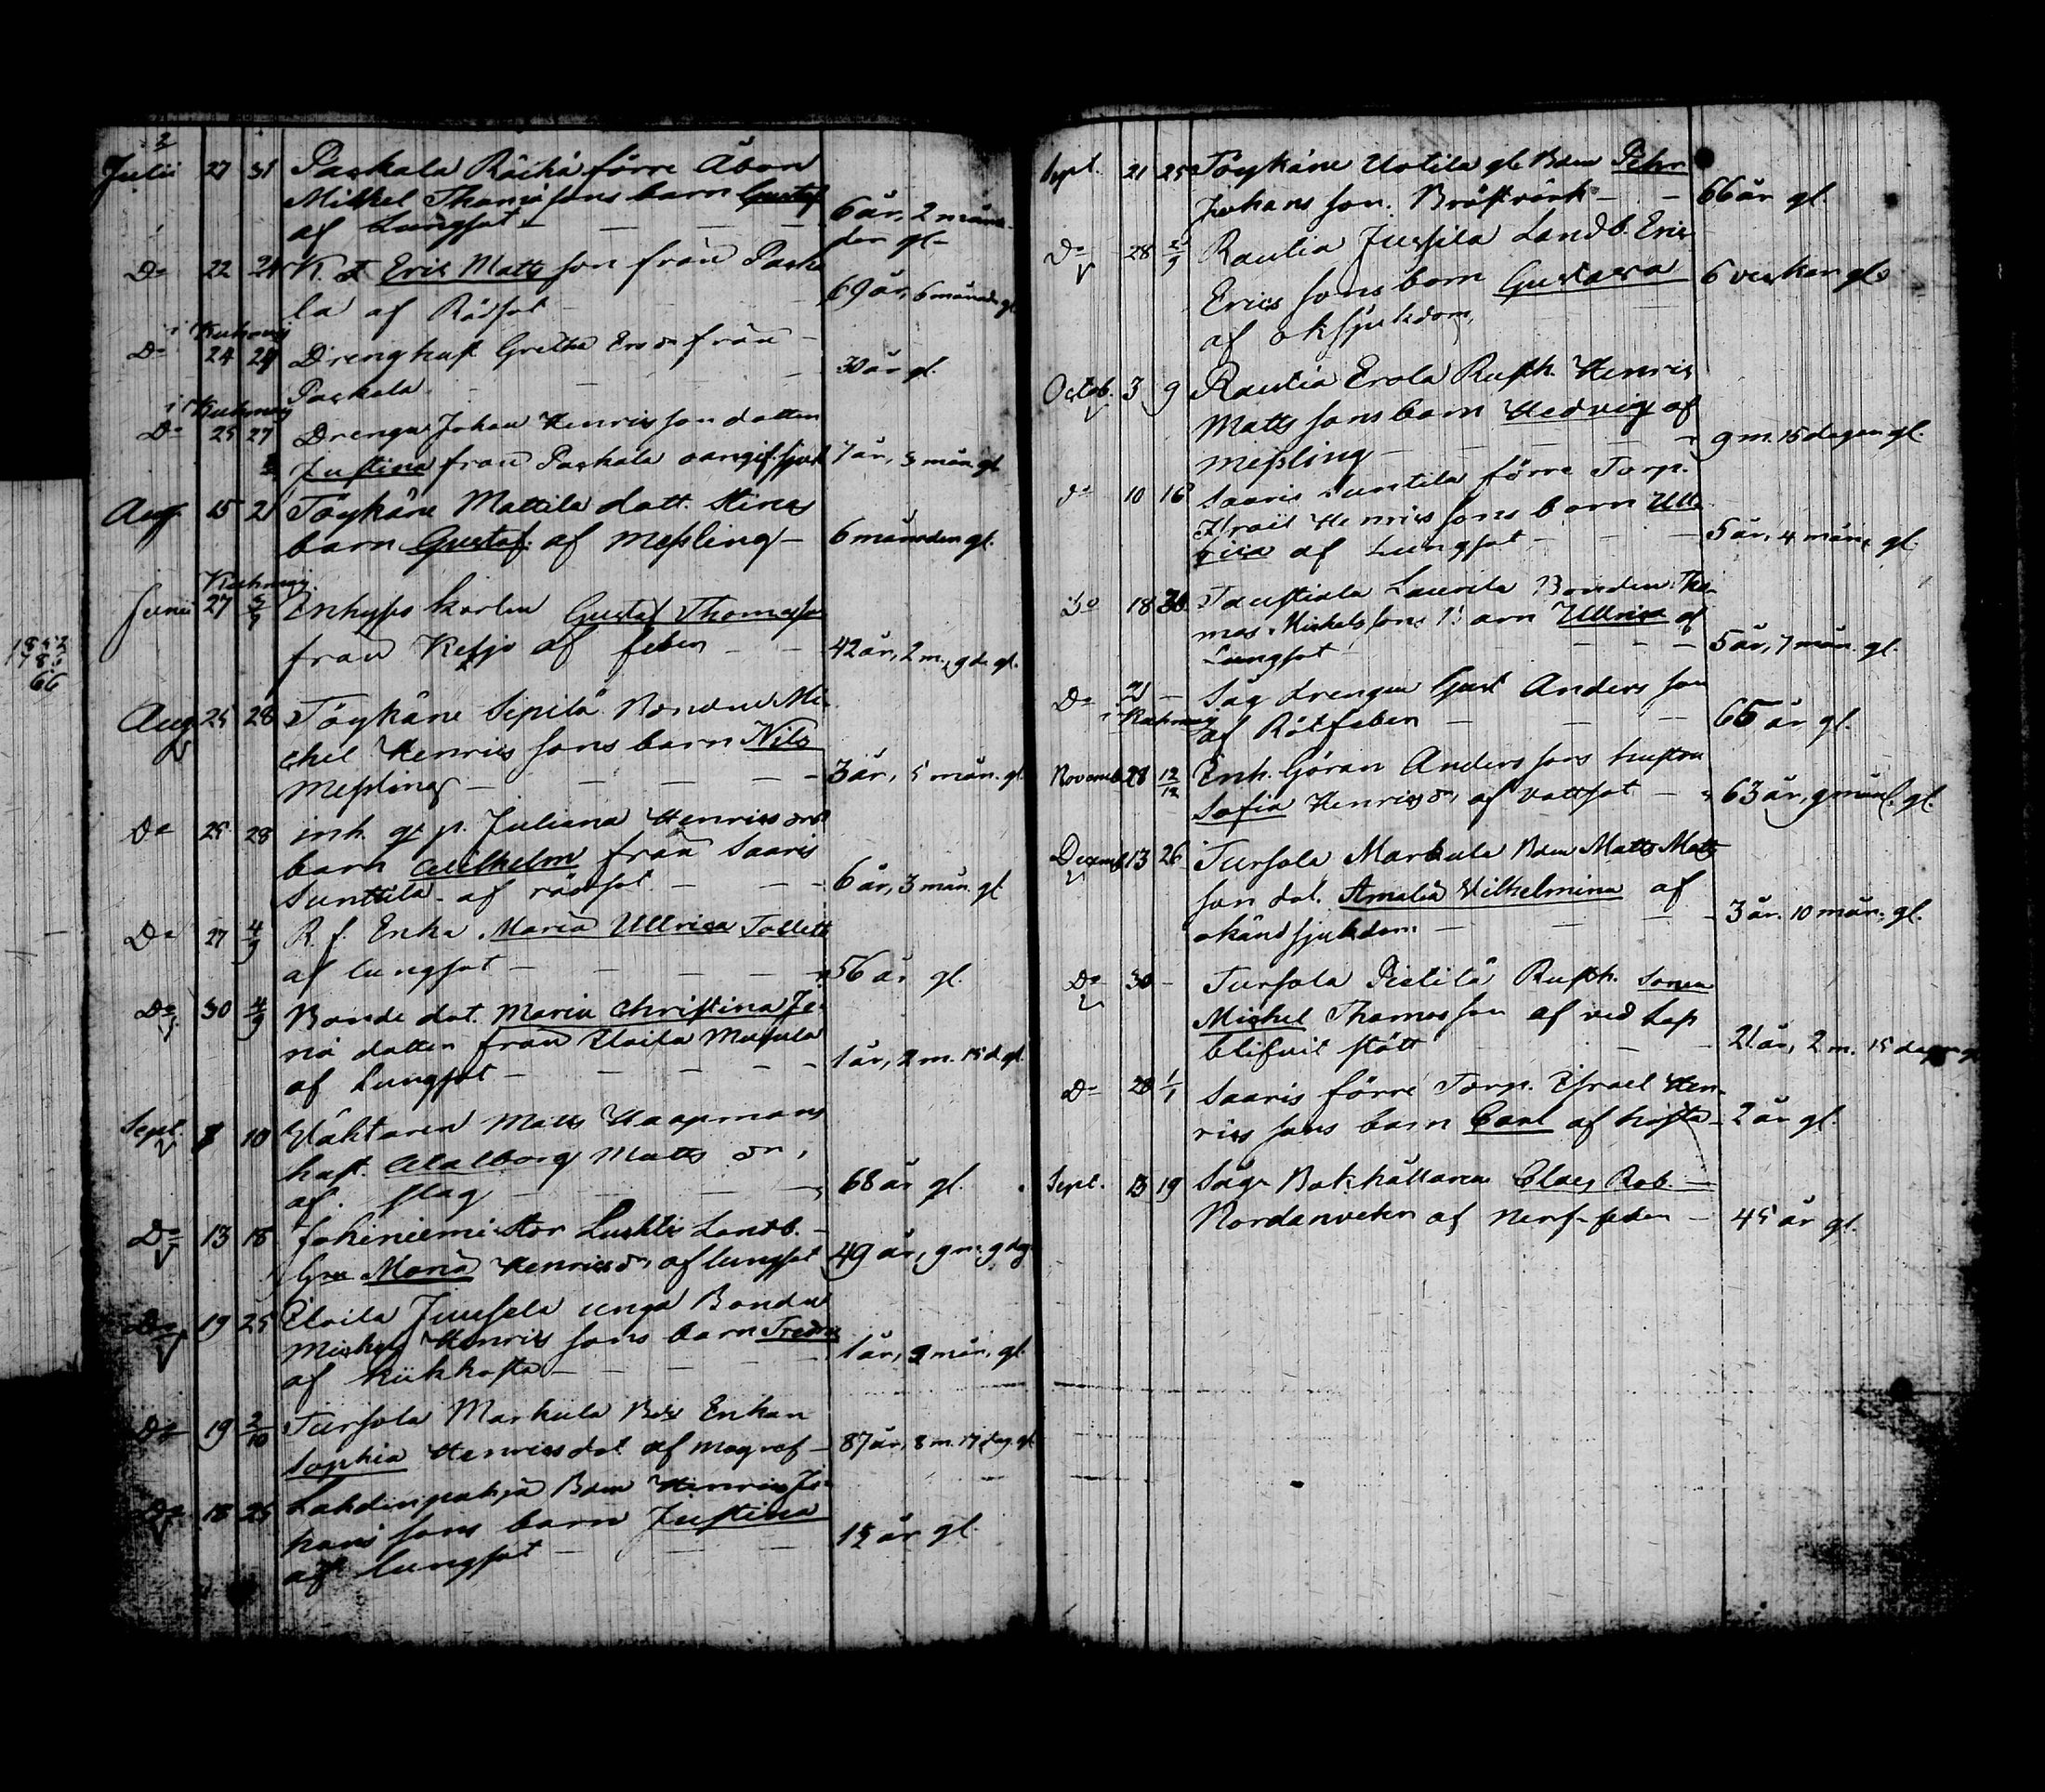 Julii 27 31 Paskala Räihä förre Åbon
Mickel Thomæ sons barn Gustaf
af Lungsot 6 år, 2 måna-
der gl.
Do 22 24 K. F Eric Matts son från Paska
la af Rödsot 69 år, 6 månad. gl
i Kuhmoj
Do 24 29 Drenghust Gretha från
Paskala 30 år gl.
i Kuhmoj
Do 25 27 Drengn Johan Henrics son dotter
Justina från Paskala oangif. sjuk 7 år, 3 mån gl
Aug 15 21 Töykäne Mattila dott. Stinas
barn Gustaf af Messling 6 månader gl.
Kuhmoij
Junii 27 Enhyses karlen Gustaf Thomasson
från af feber 42 år, 2 m., 9 d. gl.
Aug 25 28 Töykäne Sepilä Bonden Mi-
chel Henrics sons barn Nils
Messling 3 år, 5 mån. gl
Do 25 28 inh. q. p. Juliana Henrics dr
barn Wilhelm från Saaris
Suntila af rödsot 6 år, 3 mån. gl
Do 27 4/9 R. f. Enka Maria Ullrica Tollett
af lungsot 56 år gl.
Do 30 4/9 Bonde dot. Maria Christina
dotter från Eloila
af Lungsot 1 år, 2 m. 15 d. gl.
Sept. 8 10 Väktaren Matts Haapmans
hust. Walborg Matts dr,
af slag 68 år gl.
Do 13 18 Johiniemi Stor Luhtis Landb.
Maria Henrics dr af lungsot 49 år, 9 m. 9 dg
Do 19 25 Eloila Juusela unga Bonden
Michel Henrics sons barn Fredric
af kikhosta 1 år, 9 mån. gl.
Do 19 2/10 Tursola Markula Bde Enkan
Sophia Henricsdot af magref 87 år, 8 m. 17 dag. gl
Do 18 25 Lahdinpohja Bden Henric Jo-
hans sons barn Justina
af lungsot 15 år gl.
Sept. 21 25 Töykäne Uotila gl. Bden Pehr
Johans son. Bröstvärk 66 år gl.
Do 28 Rautia Jussila Landb. Eric
Erics sons barn Gustava 6 veckor gl.
af ok sjukdom,
Octob. 3 9 Rautia Erola Rusth. Henric
Matts sons barn Hedvig af
Messling 9 m. 15 dagar gl.
Do 10 16 Saaris Suntila förre Torp.
Israil Henrics sons barn Ull-
rica af Lungsot 5 år, 4 mån, gl.
Do 18 Taustiala Laurila Bonden Tho-
mas Mickels sons Barn Ullrica af
Lungsot 5 år, 7 mån. gl.
Do 21 Såg drengen Gust Anders son
i Kuhmoij af Rötfeber 65 år gl.
Novemb. 28 12/12 Enh. Göran Anders sons hustru
Sofia Henrics dr af vattsot 63 år, 9 mån. gl.
Decemb 13 26 Tursola Markula Bden Matts Matts
son dot. Amalia Wilhelmina af
okänd sjukdom 3 år. 10 mån. gl.
Do 30 Tursola Pietilä Rusth. Sonen
Mickel Thomas son af ved lass
blifvit stött 21 år, 2 m. 15 dagar gl
Do 28 1/1 Saaris förre Torp. Israel Hen-
rics sons barn Carl af hosta 2 år gl.
Sept. 13 19 Sågs Bokhållaren Claes Rob.
af Nerf-feber 45 år gl.